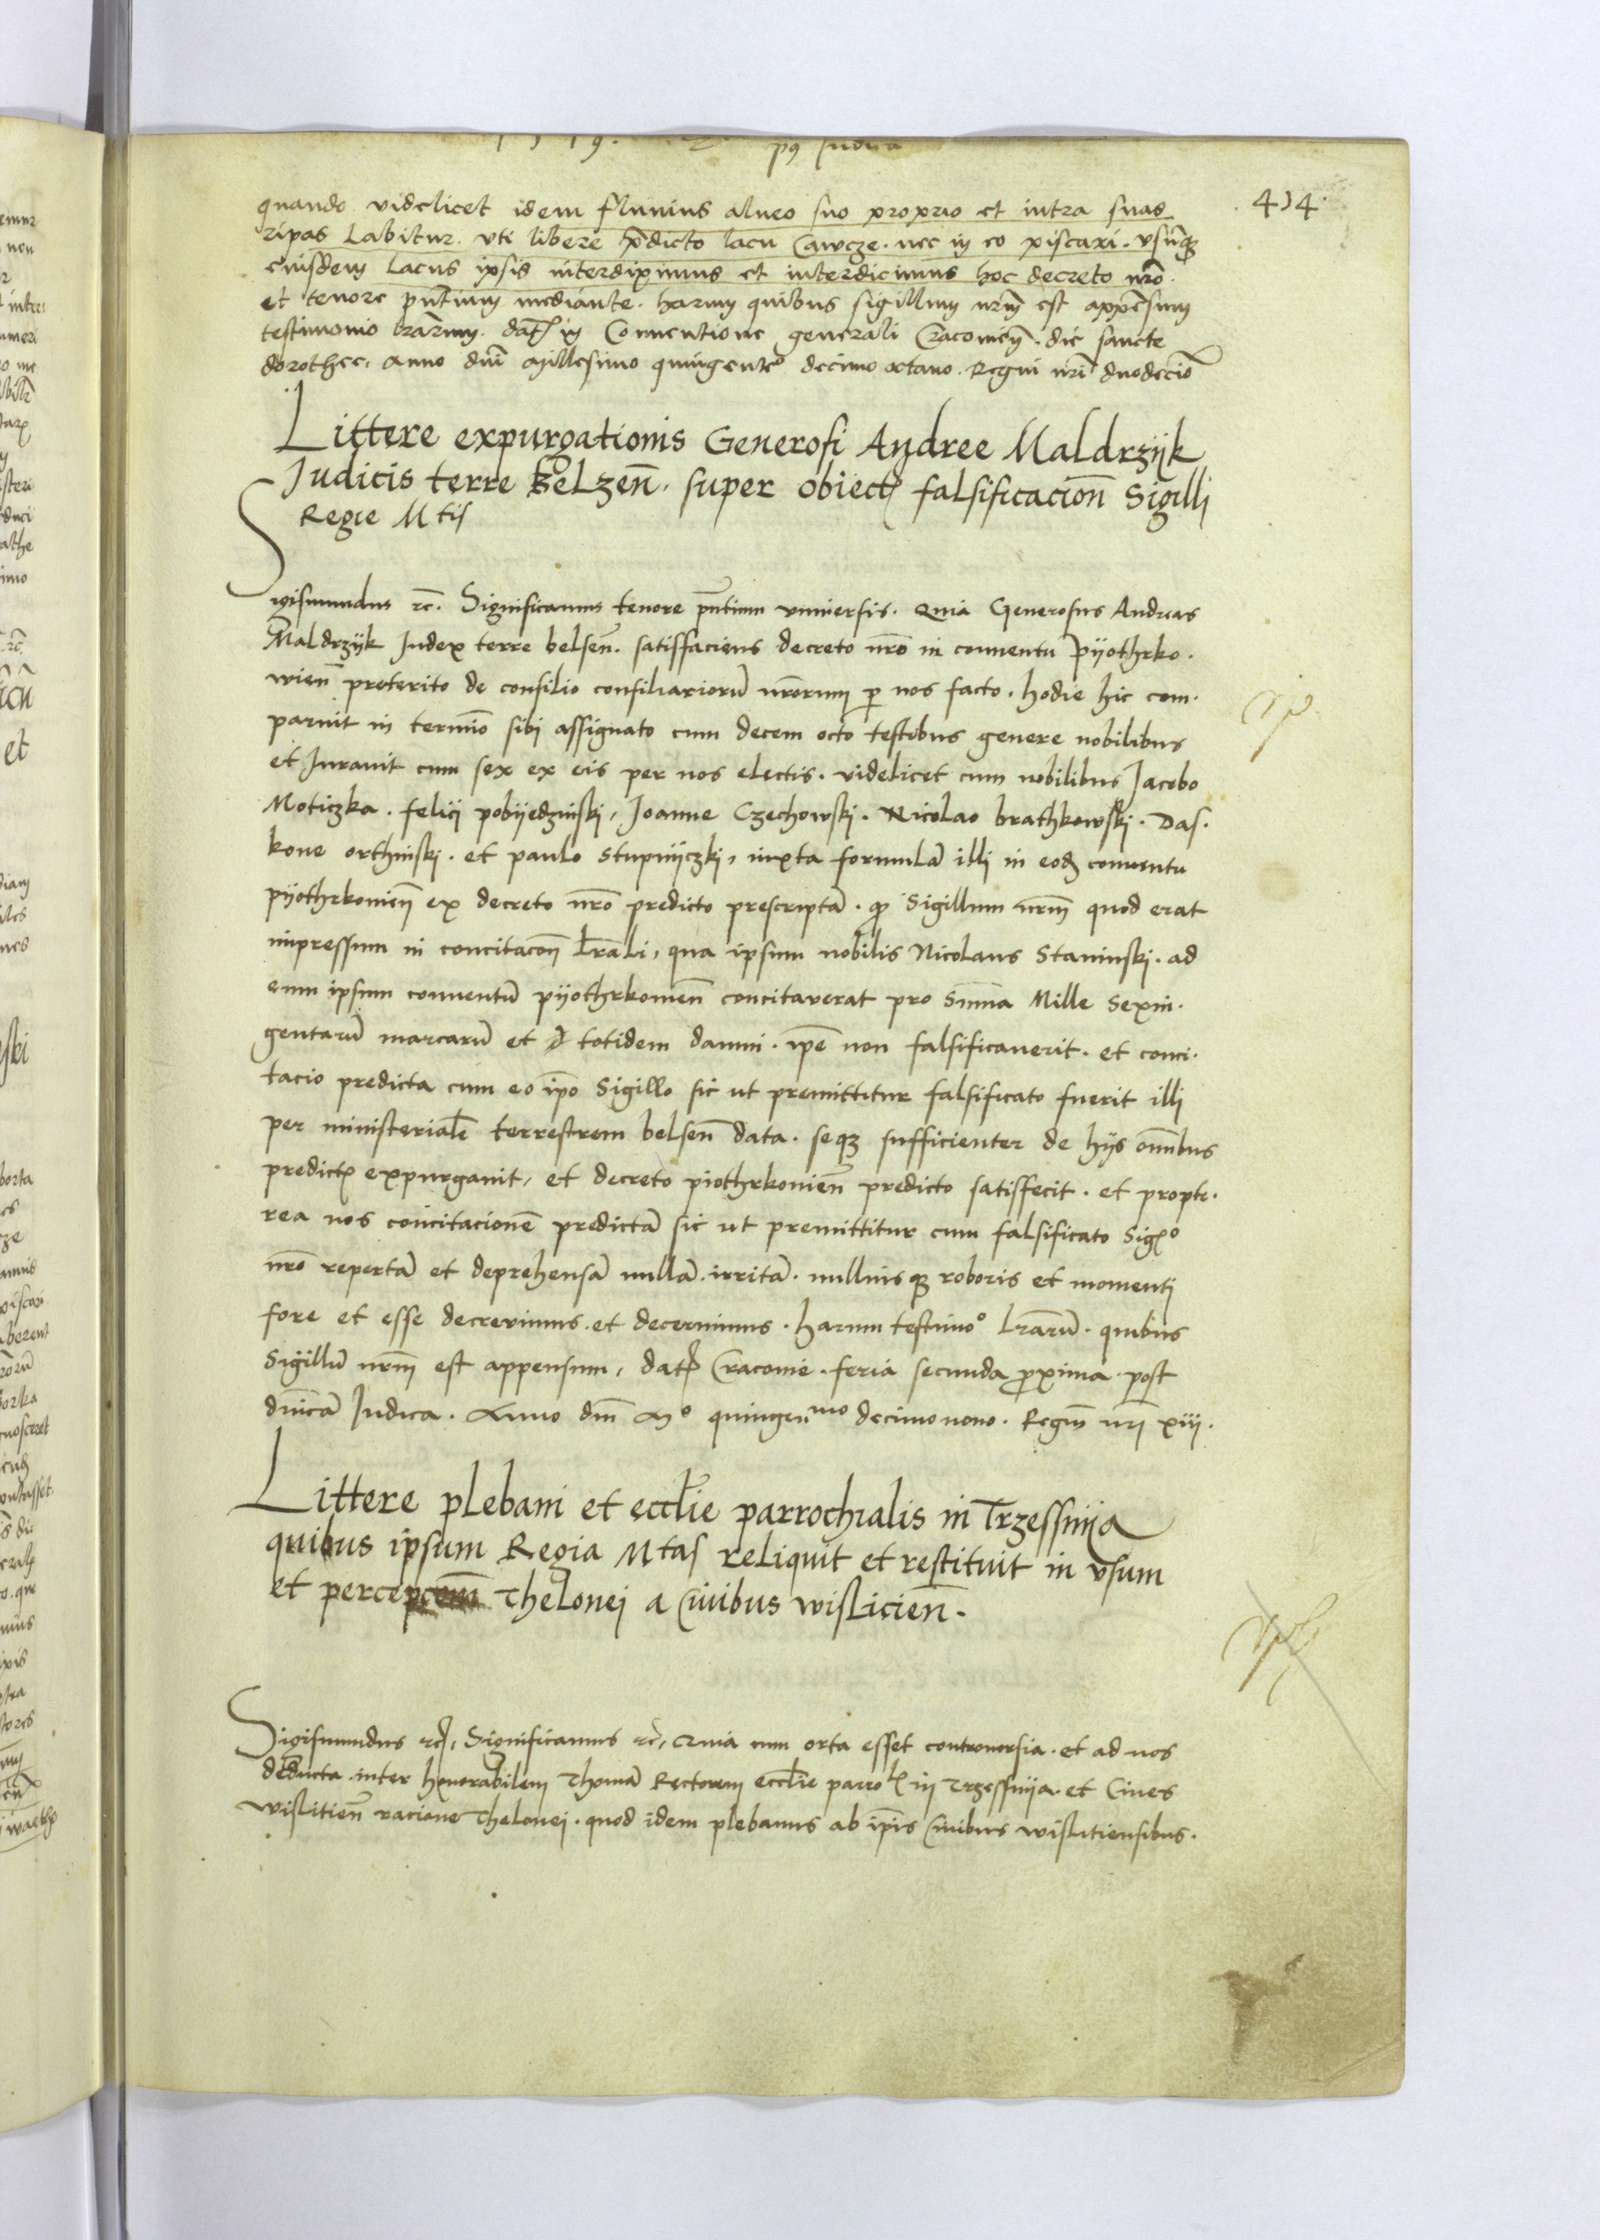 414
quando videlicet idem fluuius alueo suo proprio et intra suas
ripas labitur. vti libere p̄dicto lacu Cawcze. nec in eo piscari. vsūq₃
eiusdem lacus ipsis interdiximus et interdicimus hoc decreto nr̄o.
et tenore pn̄tium mediante. harum quibus sigillum nr̄m est appēsum
testimonio lrārum. dat₎ in Conuentione generali Cracouieñ. die sancte
dorothee. Anno dn̄i Millesimo quingentᵒ decimo octauo. Regni nr̄i duodecīo
Littere expurgationis Generosi Andree Maldrzijk
Judicis terre Belzeñ. super obiect₎ falsificacioñ Sigilli
Regie Mtis
Sigismundus rc̄. Significamus tenore pn̄tium vniuersis. Quia Generosus Andreas
Maldrzijk Judex terre belseñ. satisfaciens decreto nr̄o in conuentu Pijothrko.
wieñ preterito de consilio consiliariorū nr̄orum ꝑ nos facto. hodie hic com.
paruit in termīo sibi assignato cum decem octo testibus genere nobilibus
et Jurauit cum sex ex eis per nos electis. videlicet cum nobilibus Jacobo
Moticzka. felici pobijedzinski, Joanne Czechowski. Nicolao brathkowski. Das.
kone orthinski. et paulo stupnijczki, iuxta formulā illi in eod₃ conuentu
pijothrkouieñ ex decreto nr̄o predicto prescriptā. ꝙ Sigillum nr̄m quod erat
impressum in concitacoñ lrāli, qua ipsum nobilis Nicolaus Staninski. ad
eum ipsum conuentū pijothrkouieñ concitauerat pro Sum̄a Mille Sexin.
gentarū marcarū et totidem damni. ip̄e non falsificauerit. et conci.
tacio predicta cum eo ip̄o Sigillo sic ut premittitur falsificato fuerit illi
per ministerialē terrestrem belseñ data. seq₃ sufficienter de hijs om̄ibus
predict₎ expurgauit, et decreto piothrkouieñ predicto satisfecit. et propte.
rea nos concitacionē predictā sic ut premittitur cum falsificato Sigᵒ
nr̄o repertā et deprehensā nullā. irritā. nulliusq₃ roboris et momenti
fore et esse decreuimus. et decernimus. harum testimoᵒ lrārū. quibus
Sigillū nr̄m est appensum, dat₎ Cracouie. feria secunda proxima post
dn̄icā Judica. Anno dn̄i Mᵒ quingenᵐᵒ decimonono. Regni nr̄i xiij.
Littere plebani et eccl̄ie parrochialis in Trzessnija
quibus ipsum Regia Mtas reliquit et restituit in vsum
et percepcoem̄ Thelonei a Ciuibus wislicieñ.
Sigismundus rc̄, Significamus rc̄, Quia cum orta esset controuersia. et ad nos
deducta inter honorabilem Thomā Rectorem eccl̄ie parro₎ in Trzessnija. et Ciues
wislitieñ racione Thelonei. quod idem plebanus ab ip̄is Ciuibus wislitiensibus.